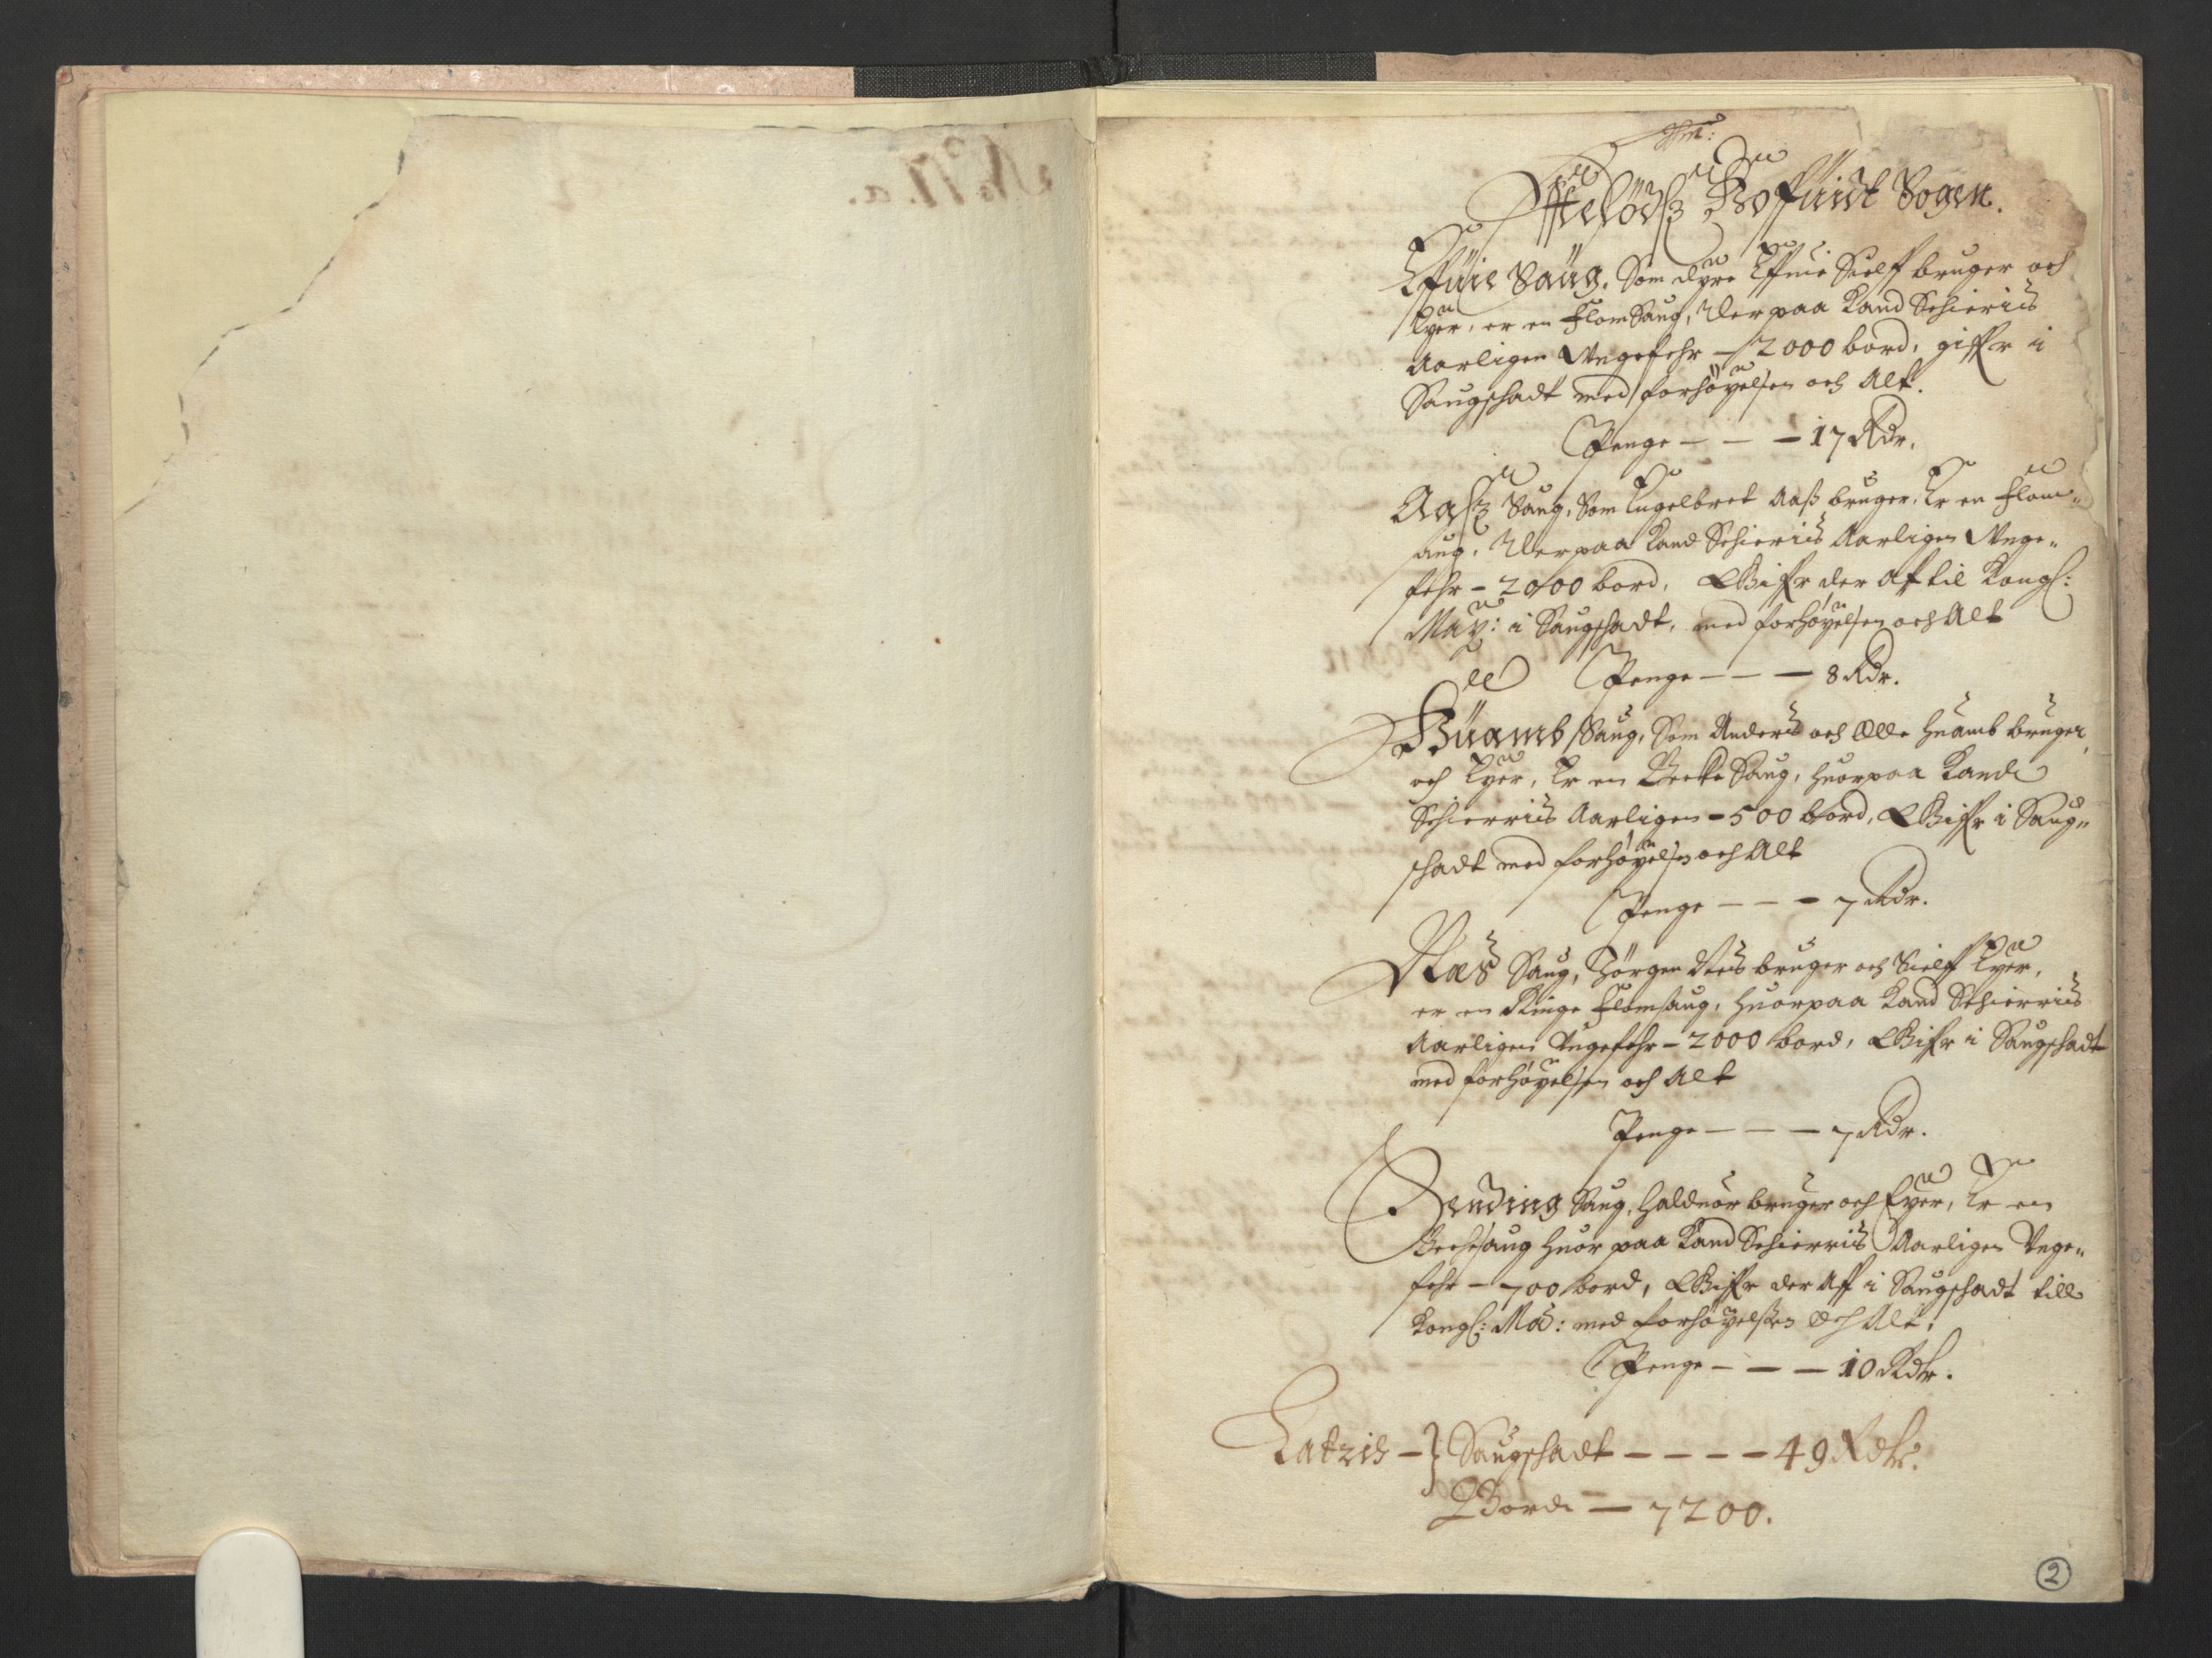 No 17. a.
Hitterøds Profuist Sogen.
Effuie Saug, Som Dyre Effuie Sielf bruger och
Eyer, er en Flom Saug, Der paa Kand Schieris
Aarligen Ungefehr – 2000 bord, giffr i
Saugschadt med forhøyelsen och Alt.
Penge – – – 17 Rdr.
Aas Saug, Som Engelbret Aaß bruger, Er en Flom-
saug, Der paa Kand Schieris Aarligen Unge-
fehr – 2000 bord, Giffr der Af til Kongl:
May: i Saugschadt, med forhøyelsen och Alt
Penge – – – 8 Rdr.
Huamb Saug, Som Anders och Olle Huamb bruger
och Eyer, Er en Becke Saug, huorpaa Kand
Schierris Aarligen – 500 bord, Giffr i Saug-
schadt med forhøyelsen och Alt
Penge – – – 7 Rdr.
Næs Saug, Jörgen Nes bruger och Sielf Eyer,
er en Ringe Flomsaug, huorpaa Kand Schierris
Aarligen Ungefehr – 2000 bord, Giffr i Saugschadt
med forhøyelsen och Alt
Penge – – – 7 Rdr.
Saug, Halduor bruger och Eyer, Er en
Beckesaug huor paa Kand Schierris Aarligen Unge-
fehr – 700 bord, Giffr der Aff i Saugschadt till
Kongl: Ma: med forhøyelsen Och Alt,
Penge – – – 10 Rdr.
Latris – } Saugschadt – – – – 49 Rdr.
Bord – 7200.
2